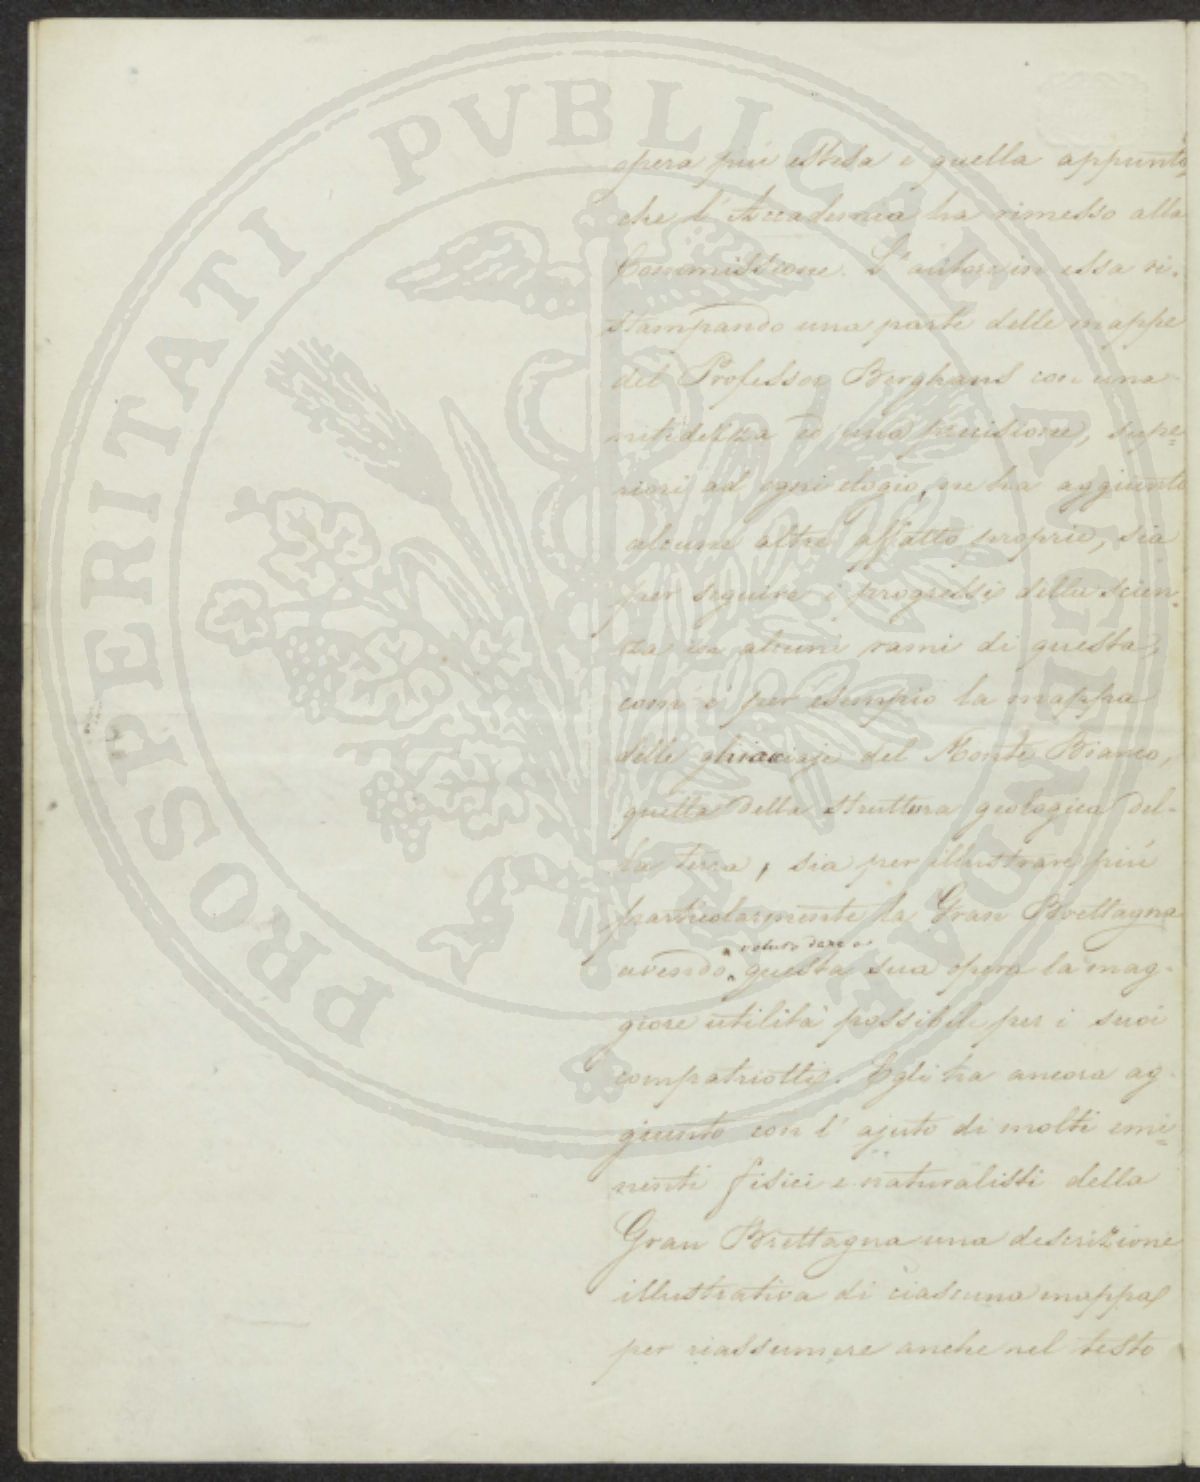 opera più estesa e quella appunto
che l'Accademia ha rimesso alla
Commissione. L'autore in essa ri-
stampando una parte delle mappe
del Professor Berghaus con una
nitidezza ed una precisione, supe=
riori ad ogni elogio, ne ha aggiunti
alcune altre affatto proprie, sia
per seguire i progressi della scien-
za in alcuni rami di questa,
com'è per esempio la mappa
delle ghiacciaje del Monte Bianco,
quella della struttura geologica del-
la terra, sia per illustrare più
particolarmente la Gran Brettagna
voluto dare a
avendo questa sua opera la mag-
giore utilità possibile per i suoi
compatriotti. Egli ha ancora ag-
giunto con l'ajuto di molti emi=
nenti fisici e naturalisti della
Gran Brettagna una descrizione
illustrativa di ciascuna mappa
per riassumere anche nel testo
PROSPERITATI PVBLICAE AVGENDAE